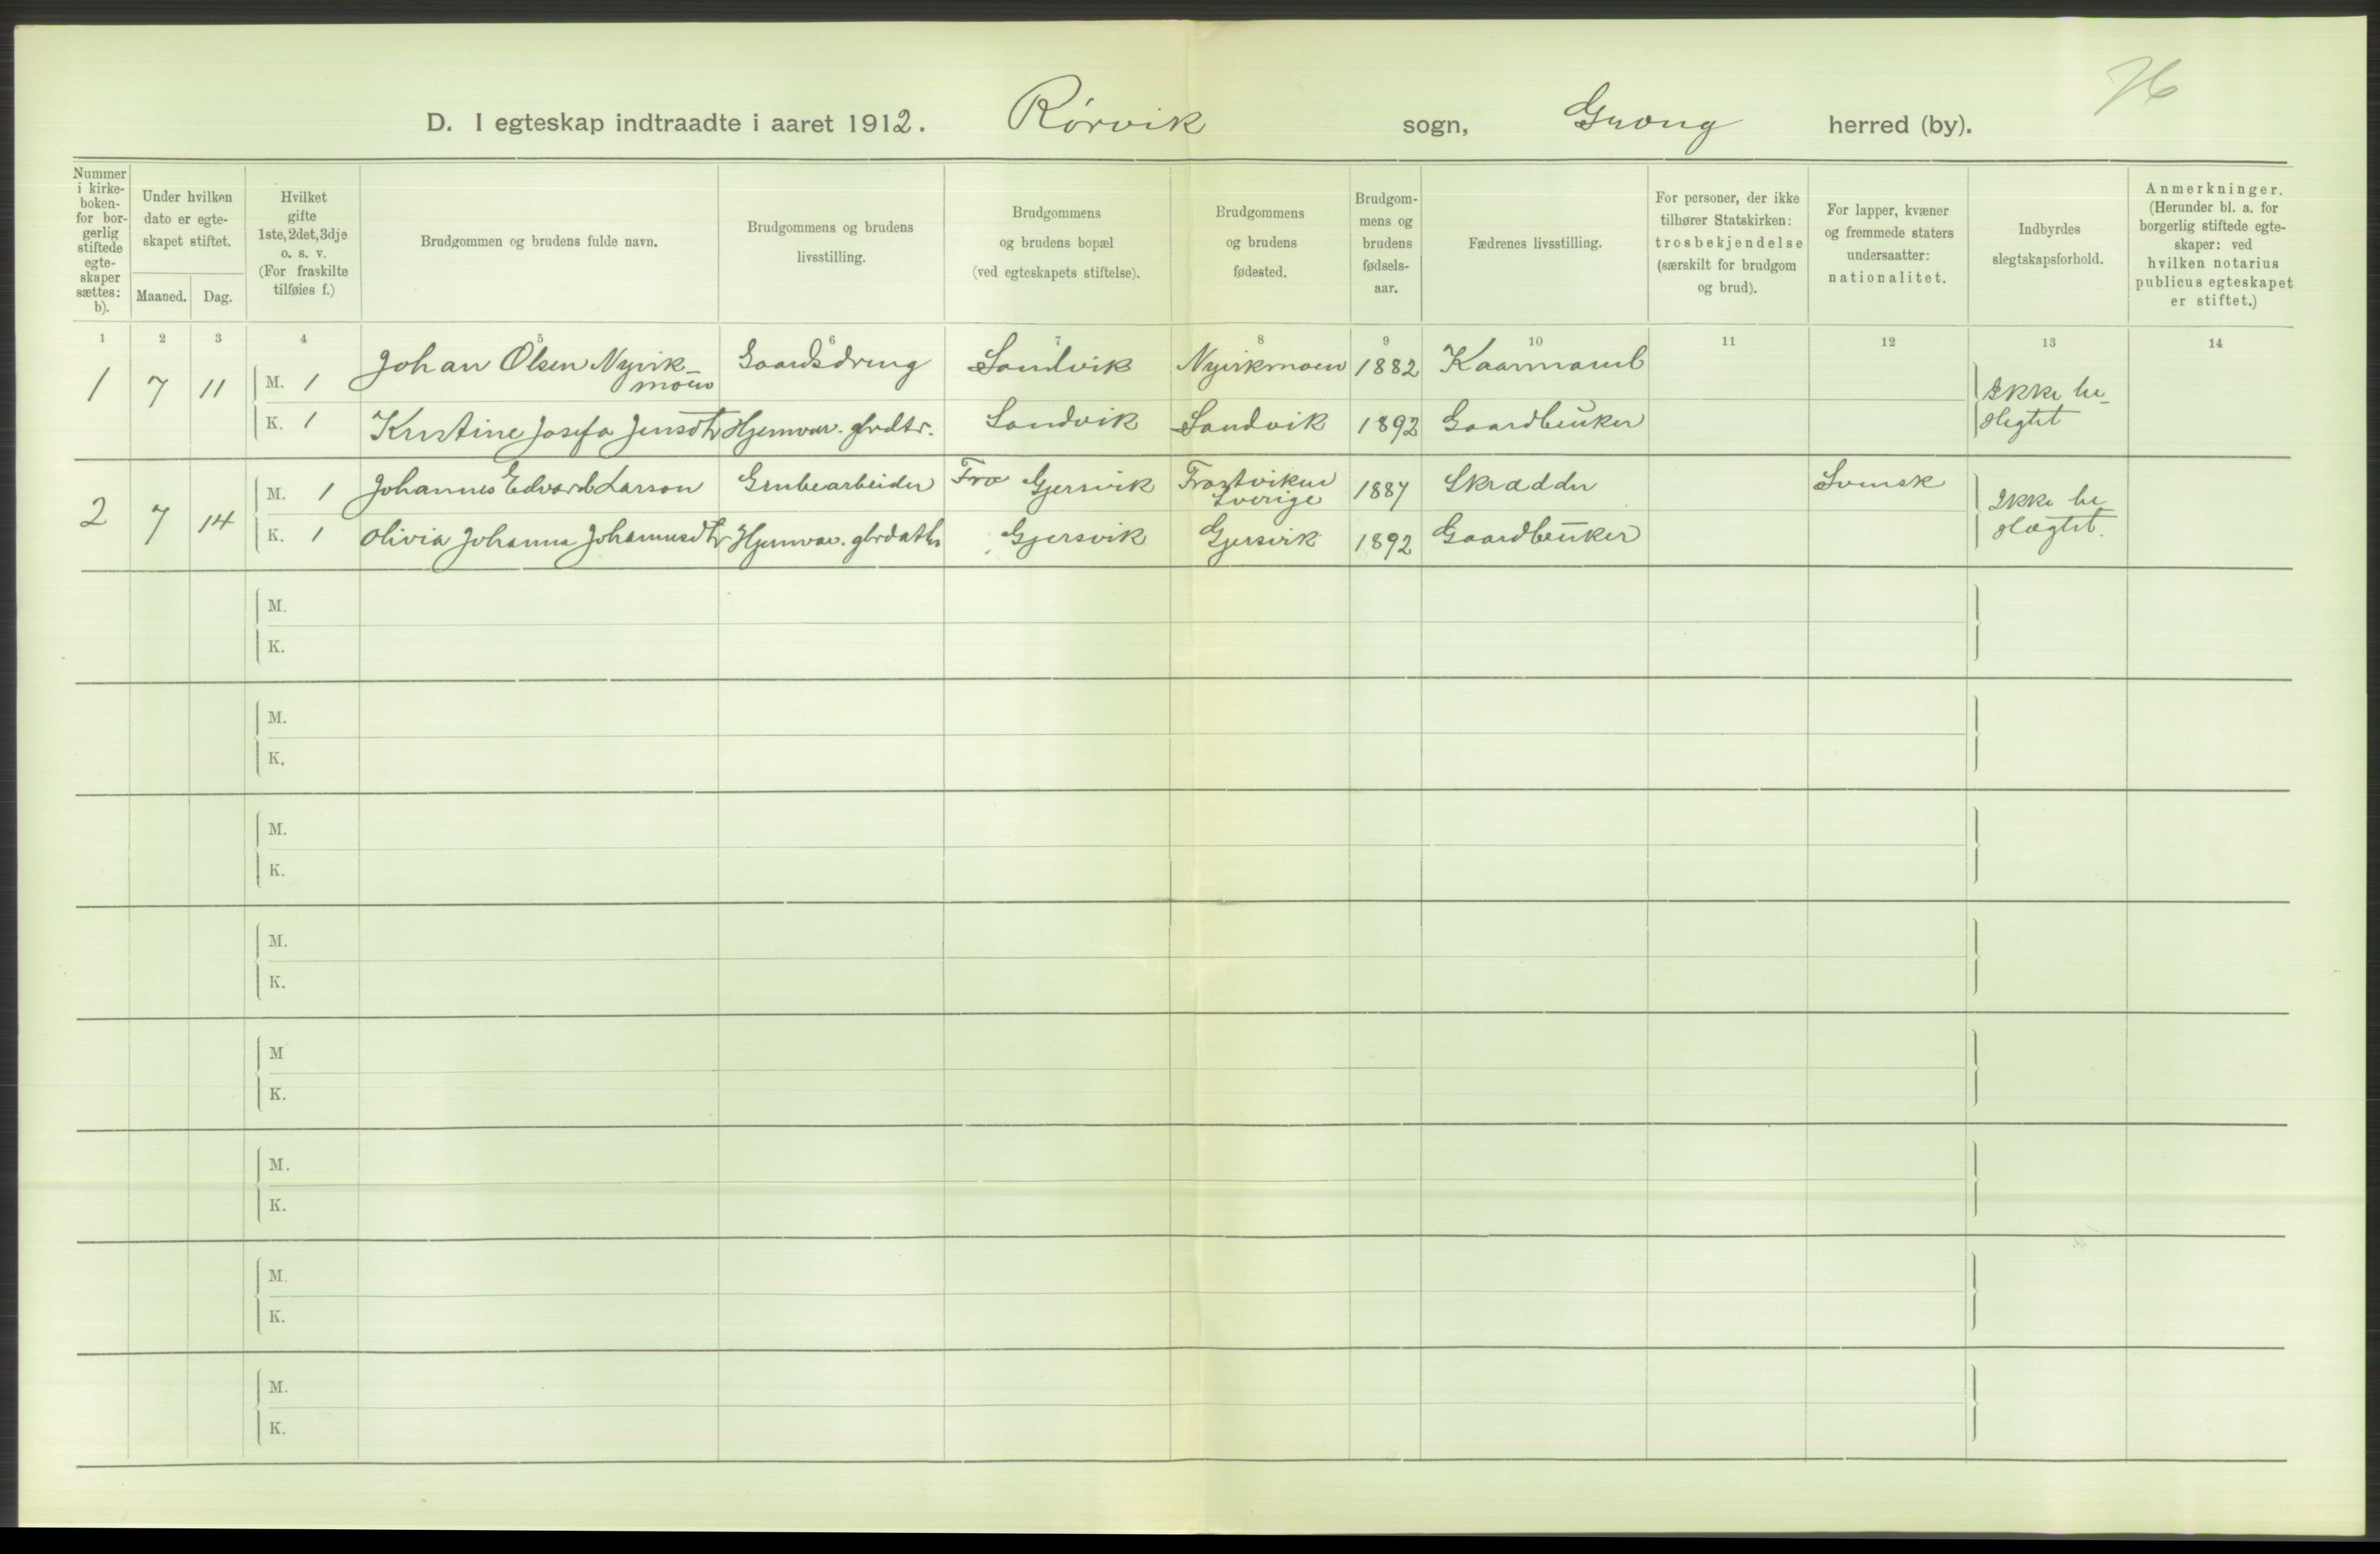 D. I egteskap indtraadte i aaret 1912. Rørvik sogn, Grong herred (by).
Nummer i kirke-boken- for bor-gerlig stiftede egte-skaper sættes: b).
Under hvilken dato er egte-skapet stiftet.
Maaned. Dag.
Hvilket gifte 1ste, 2det, 3dje o. s. v. (For fraskilte tilføies f.)
Brudgommen og brudens fulde navn.
Brudgommens og brudens livsstilling.
Brudgommens og brudens bopæl (ved egteskapets stiftelse).
Brudgommens og brudens fødested.
Brudgom-mens og brudens fødsels-aar.
Fædrenes livsstilling.
For personer, der ikke tilhører Statskirken: trosbekjendelse (særskilt for brudgom og brud).
For lapper, kvæner og fremmede staters undersaatter: nationalitet.
Indbyrdes slegtskapsforhold.
Anmerkninger. (Herunder bl. a. for borgerlig stiftede egte-skaper: ved hvilken notarius publicus egteskapet er stiftet.)
1 2 3 4 5 6 7 8 9 10 11 12 13 14
1 7 11 M. 1 Johan Olsen Nyvik-moen Gaardsdreng Sandvik Nyvikmoen 1882 Kaarmand Ikke be-
K. 1 Kristine Josefa Jensdtr Hjemvær. gbrdtr. Sandvik Sandvik 1892 Gaardbruker slegtet
2 7 14 M. 1 Johannes Edvard Larson Grubearbeider Fra Gjersvik Frostviken Sverige 1887 Skrædder Svensk Ikke be
K. 1 Olivia Johanna Johannesdtr Hjemvær. gbrdattr Gjersvik Gjersvik 1892 Gaardbruker slægtet.
M.
K.
M.
K.
M.
K.
M.
K.
M
K.
M.
K.
M.
K.
M.
K.